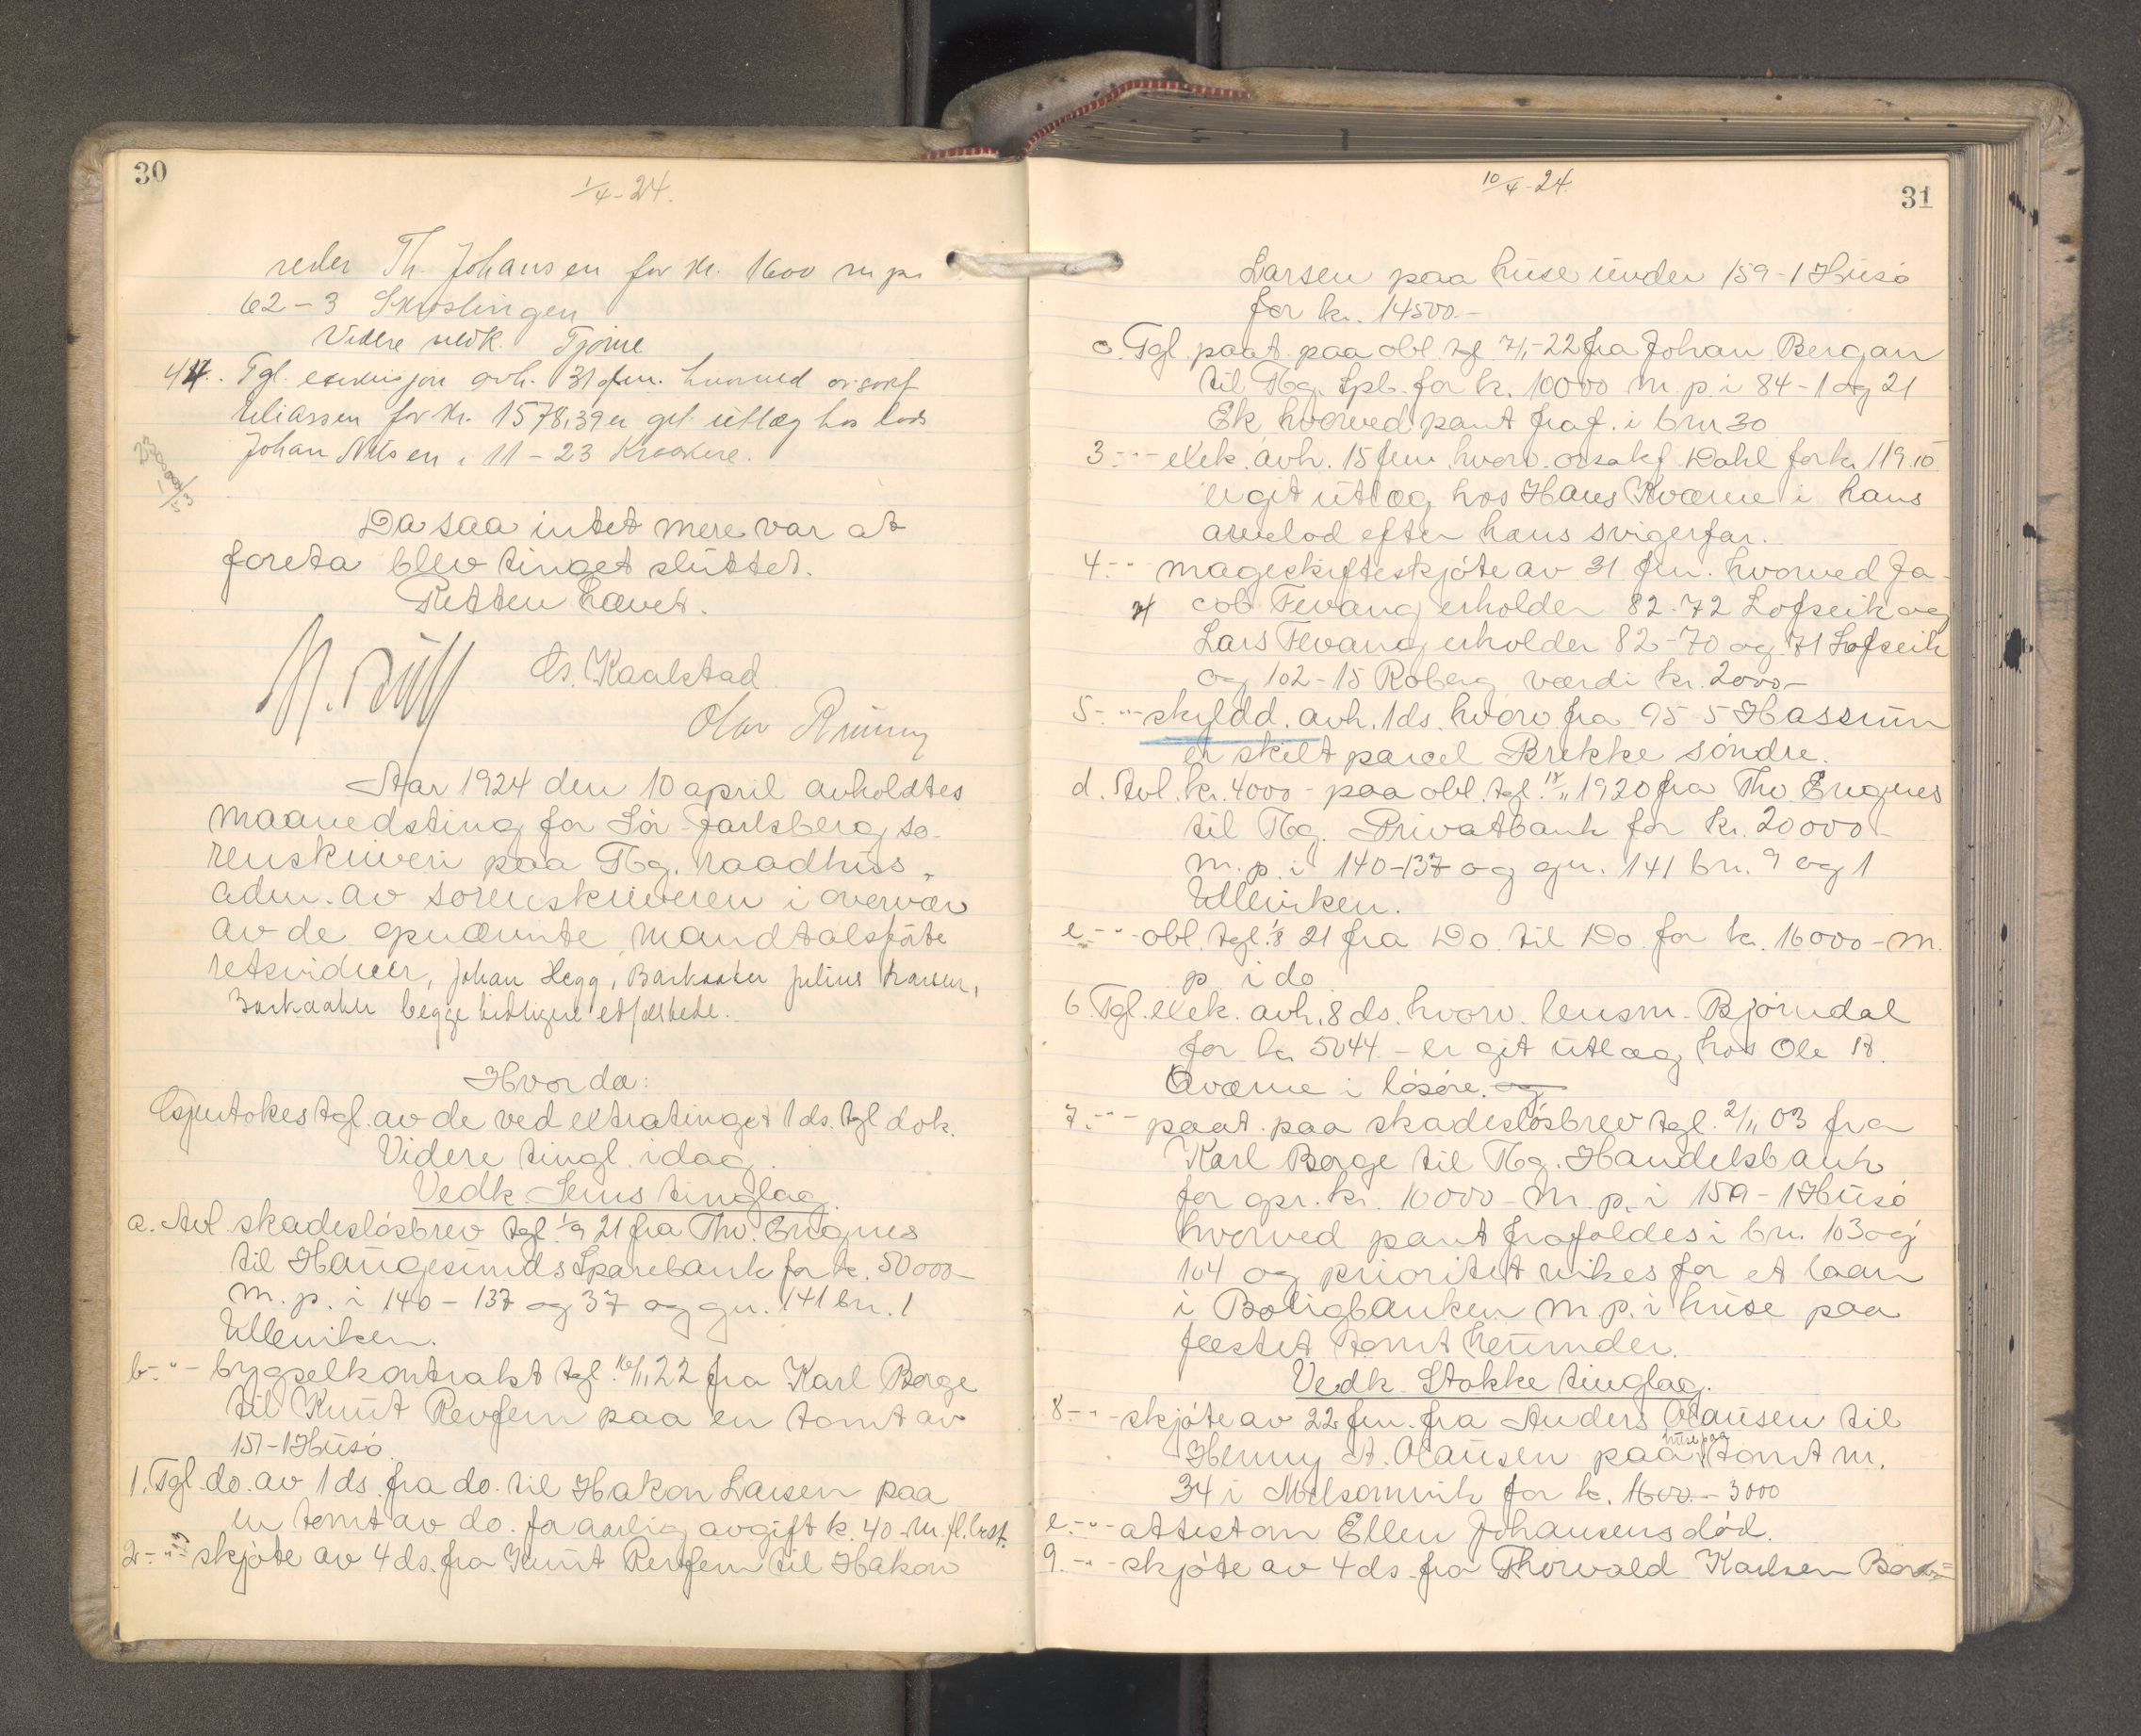 30
1/4-24.
reder Th. Johansen for kr. 1600 m. p.
62-3
Videre vedk. Tjøme
44. Tgl. avh. 31 f.m. hvorved orsakf.
Eliassen for kr. 1578,39 er git utlæg hos lods
Johan Nilsen i 11-23 Kraakere.
Da saa intet mere var at
foreta blev tinget sluttet.
Retten hævet.
Cs. Kaalstad
Olav
Aar 1924 den 10 april avholdtes
maanedsting for Sør-Jarlsberg so-
renskriveri paa Tbg. raadhus,
adm. av sorenskriveren i overvær
av de opnævnte mandtalsførte
retsvidner, Johan Hegg, Barkaaker Julius Larsen,
Barkaaker begge tidligere edfæstede.
Hvorda:
Gjentokes tgl. av de ved extratinget 1 ds. tgl. dok.
Videre tingl. idag.
Vedk. Sems tinglag.
a. Avl. skadesløsbrev tgl. 1/9 21 fra Thv. Engnes
til Haugesunds Sparebank for k. 50000-
m. p. i 140-137 og 37 og gn. 141 bn. 1
Ulleviken.
b.-"- bygselkontrakt tgl. 16/11 22 fra Karl Borge
til Knut Revfem paa en tomt av
151-1 Husø
1. Tgl. do. av 1 ds. fra do. til Hakon Larsen paa
en tomt av do. for aarlig avgift k. 40- m. fl. best.
2-"- skjøte av 4 ds. fra Knut Revfem til Hakon
10/4-24.
31
Larsen paa huse under 159-1 Husø
for kr. 14500.-
c. Tgl. paat. paa obl. tgl. 7/1-22 fra Johan Bergan
til Tbg. Spb. for k. 10000 m. p. i 84-1 og 21
Ek hvorved pant fraf. i bnr 30
3.-"- exek. avh. 15 f.m. hvorv. orsakf. Dahl for kr. 119.10
er git utlæg hos Hans Kværne i hans
arvelod efter hans svigerfar.
4.-"- mageskifteskjøte av 31 f.m. hvorved Ja-
cob Fevang erholder 82-72 Lofseik og
Lars Fevang erholder 82-70 og 71 Lofseik
og 102-15 Roberg værdi kr. 2000-
5-"- skyldd. avh. 1 ds. hvorv fra 95-5 Hassum
er skilt parcel Brekke søndre.
d. Avl. kr. 4000- paa obl. tgl. 18/11 1920 fra Thv. Engnes
til Tbg. Privatbank for kr. 20000-
m. p. i 140-137 og gn. 141 bn. 9 og 1
Ulleviken.
e.-"- obl. tgl. 1/8 21 fra Do til Do for k. 16000- m.
p. i do
6. Tgl. exek. avh. 8 ds. hvorv. lensm. Bjørndal
for kr. 5044.- er git utlæg hos Ole A.
Qværne i løsøre. og
7.-"- paat. paa skadesløsbrev tgl. 2/11 03 fra
Karl Borge til Tbg. Handelsbank
for opr. kr. 10000- m. p. i 159-1 Husø
hvorved pant frafaldes i bn. 103 og
104 og prioritet vikes for et laan
i Boligbanken m. p. i huse paa
fæstet tomt herunder.
Vedk. Stokke tinglag.
8-"- skjøte av 22 f.m. fra Anders Olausen til
Henny A. Olausen paa huse paa tomt nr.
34 i Melsomvik for k. 1600- 3000
e.-"- attest om Ellen Johansens død.
9.-"- skjøte av 4 ds. fra Thorvald Karlsen